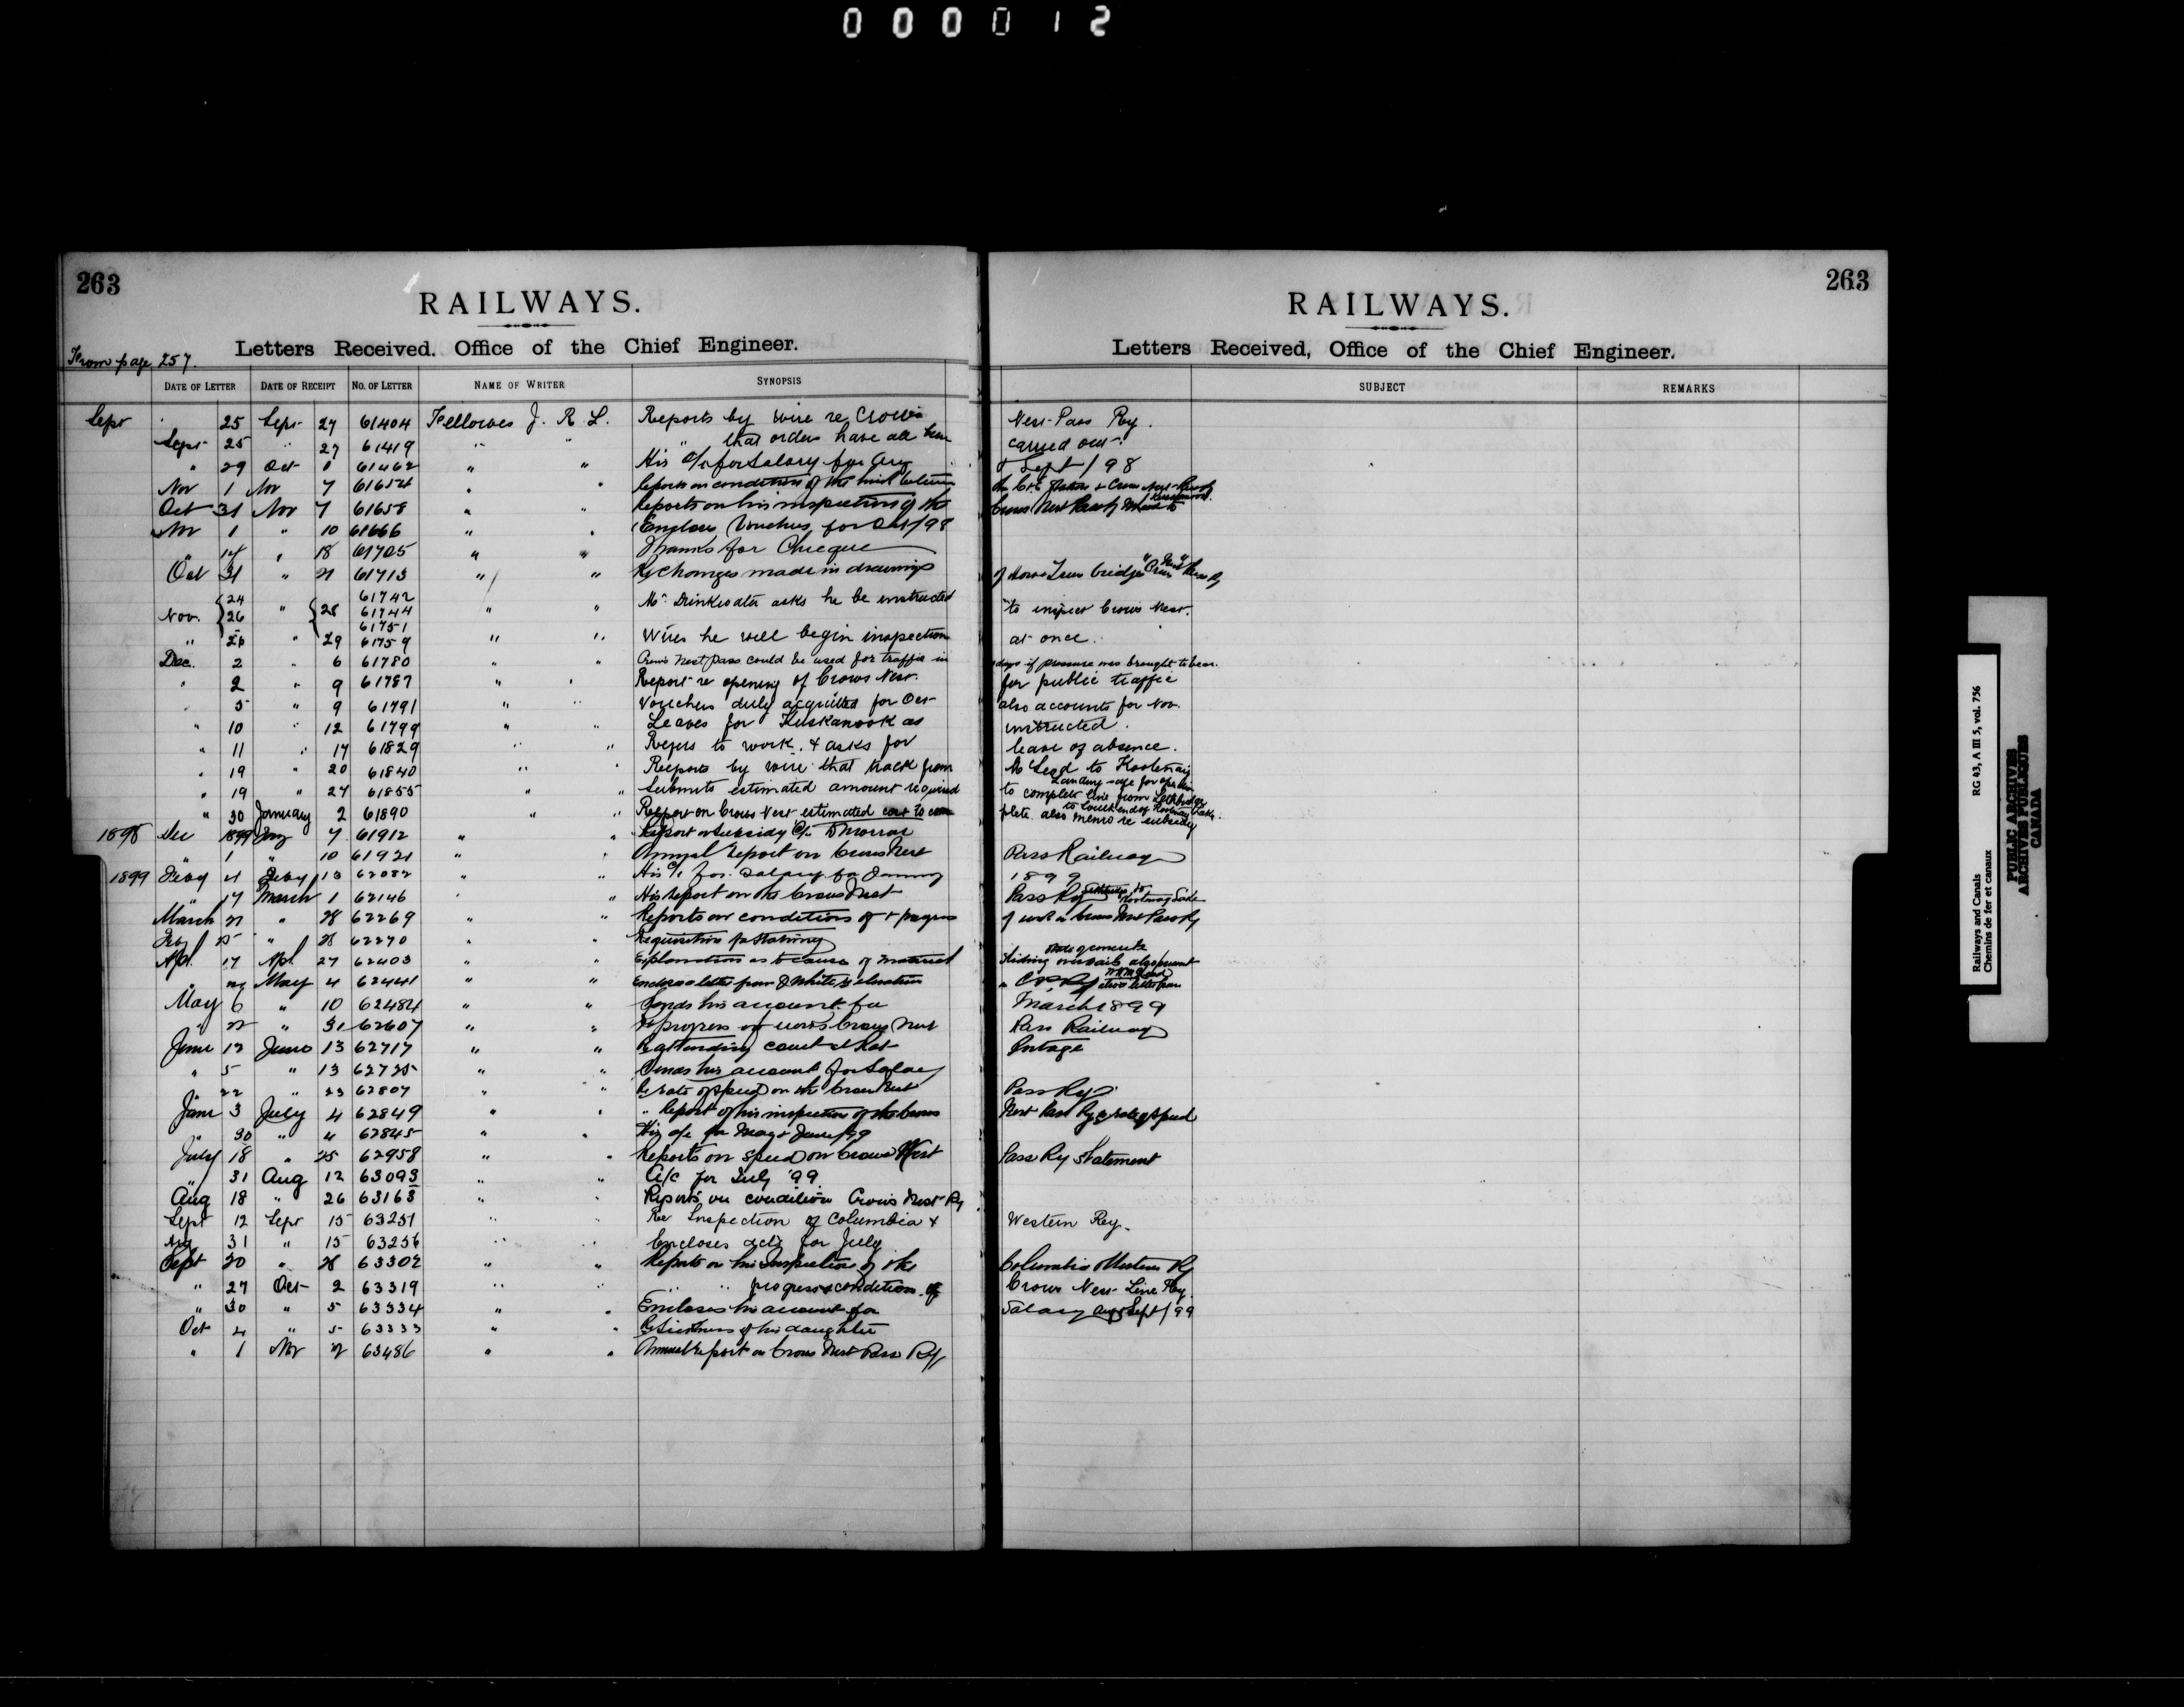 000012
263
RAILWAYS.
Letters Received. Office of the Chief Engineer.
From page 257.
DATE OF LETTER DATE OF RECEIPT NO. OF LETTER NAME OF WRITER SYNOPSIS
263
RAILWAYS.
Letters Received, Office of the Chief Engineer.
SUBJECT REMARKS
Sept 25 Sept 27 61404 Fellowes J. R. L. Reports by wire re Crow's Nest Pass Ry.
Sept 25 " 27 61419 " " " that orders have all been carried out.
" 29 Oct 1 61462 " " His a/c for Salary for Aug & Sept/98
Nov 1 Nov 7 61654 " " Reports on condition of the
Oct 31 Nov 7 61658 " " Reports on his inspection of the Crows Nest Pass Ry
Nov 1 " 10 61666 " " Encloses Vouchers for Oct/98
" 14 " 18 61705 " " Thanks for Cheque
Oct 31 " 21 61713 " " Re Changes made in drawings of Howe Truss bridges "Crow's Nest" Pass Ry
Nov. 24 26 " 28 61742 61744 61751 " " Mr. Drinkwater asks he be instructed to inspect Crows Nest.
" 26 " 29 61759 " " Wires he will begin inspection at once.
Dec. 2 " 6 61780 " " Crow's Nest Pass could be used for traffic in days if pressure was brought to bear.
" 2 " 9 61787 " " Report re opening of Crows Nest. for public traffic
" 5 " 9 61791 " " Vouchers duly acquitted for Oct also accounts for Nov.
" 10 " 12 61799 " " Leaves for Kuskanook as instructed.
" 11 " 17 61829 " " Refers to work. & asks for leave of absence.
" 19 " 20 61840 " " Reports by wire that track from McLeod to Kootenay Landing safe for
" 19 " 27 61855 " " Submits estimated amount required to complete line from Lethbridge to South end of Kootenay Lake.
" 30 January 2 61890 " " Report on Crows Nest estimated cost to complete. also memo re subsidy
1898 Dec 1899 Jany 7 61912 " " Report on Subsidy
" 1 " 10 61921 " " Annual Report on Crows Nest Pass Railway
1899 Feby 4 Feby 13 62082 " " His a/c for Salary for January 1899
" 17 March 1 62146 " " His report on the Crows Nest Pass Ry Lethbridge to Kootenay Lake
March 21 " 28 62269 " " Reports on conditions of & progress of work on Crows Nest Pass Ry
Feby 25 " 28 62270 " " Requisition for Stationery
Apl. 17 Apl 27 62403 " " Explanation as to cause of
" May 4 62441 " " Encloses letter from J White
May 6 " 10 62484 " " Sends his account for March 1899
" 22 " 31 62607 " " Re progress of works Crows Nest Pass Railway
June 12 June 13 62717 " " Re attending court at Rat Portage
" 5 " 13 62725 " " Sends his account for Salary
" 22 " 23 62807 " " Re rate of speed on the Crows Nest Pass Ry
June 3 July 4 62849 " " " Report of his inspection of the Crows Nest Pass Ry & rate of speed
" 30 " 4 62845 " " His a/c for May & June/99
July 18 " 25 62958 " " Reports on speed on Crows Nest Pass Ry statement
" 31 Aug 12 63093 " " A/c for July '99
Aug 18 " 26 63163 " " Reports on condition Crow's Nest Ry
Sept 12 Sept 15 63251 " " Re Inspection of Columbia & Western Ry.
Aug 31 " 15 63256 " " Encloses acct for July
Sept 20 " 28 63302 " " Reports on his Inspection of the Columbia & Western Ry
" 27 Oct 2 63319 " " " " progress & condition of Crows Nest Line Ry.
" 30 " 5 63334 " " Encloses his account for Salary Aug & Sept/99
Oct 4 " 5 63333 " " Re Sickness of his daughter
" 1 Nov 2 63486 " " Annual report on Crows Nest Pass Ry
Railways and Canals RG 43, A III 5, vol. 756
Chemins de fer et canaux
PUBLIC ARCHIVES
ARCHIVES PUBLIQUES
CANADA